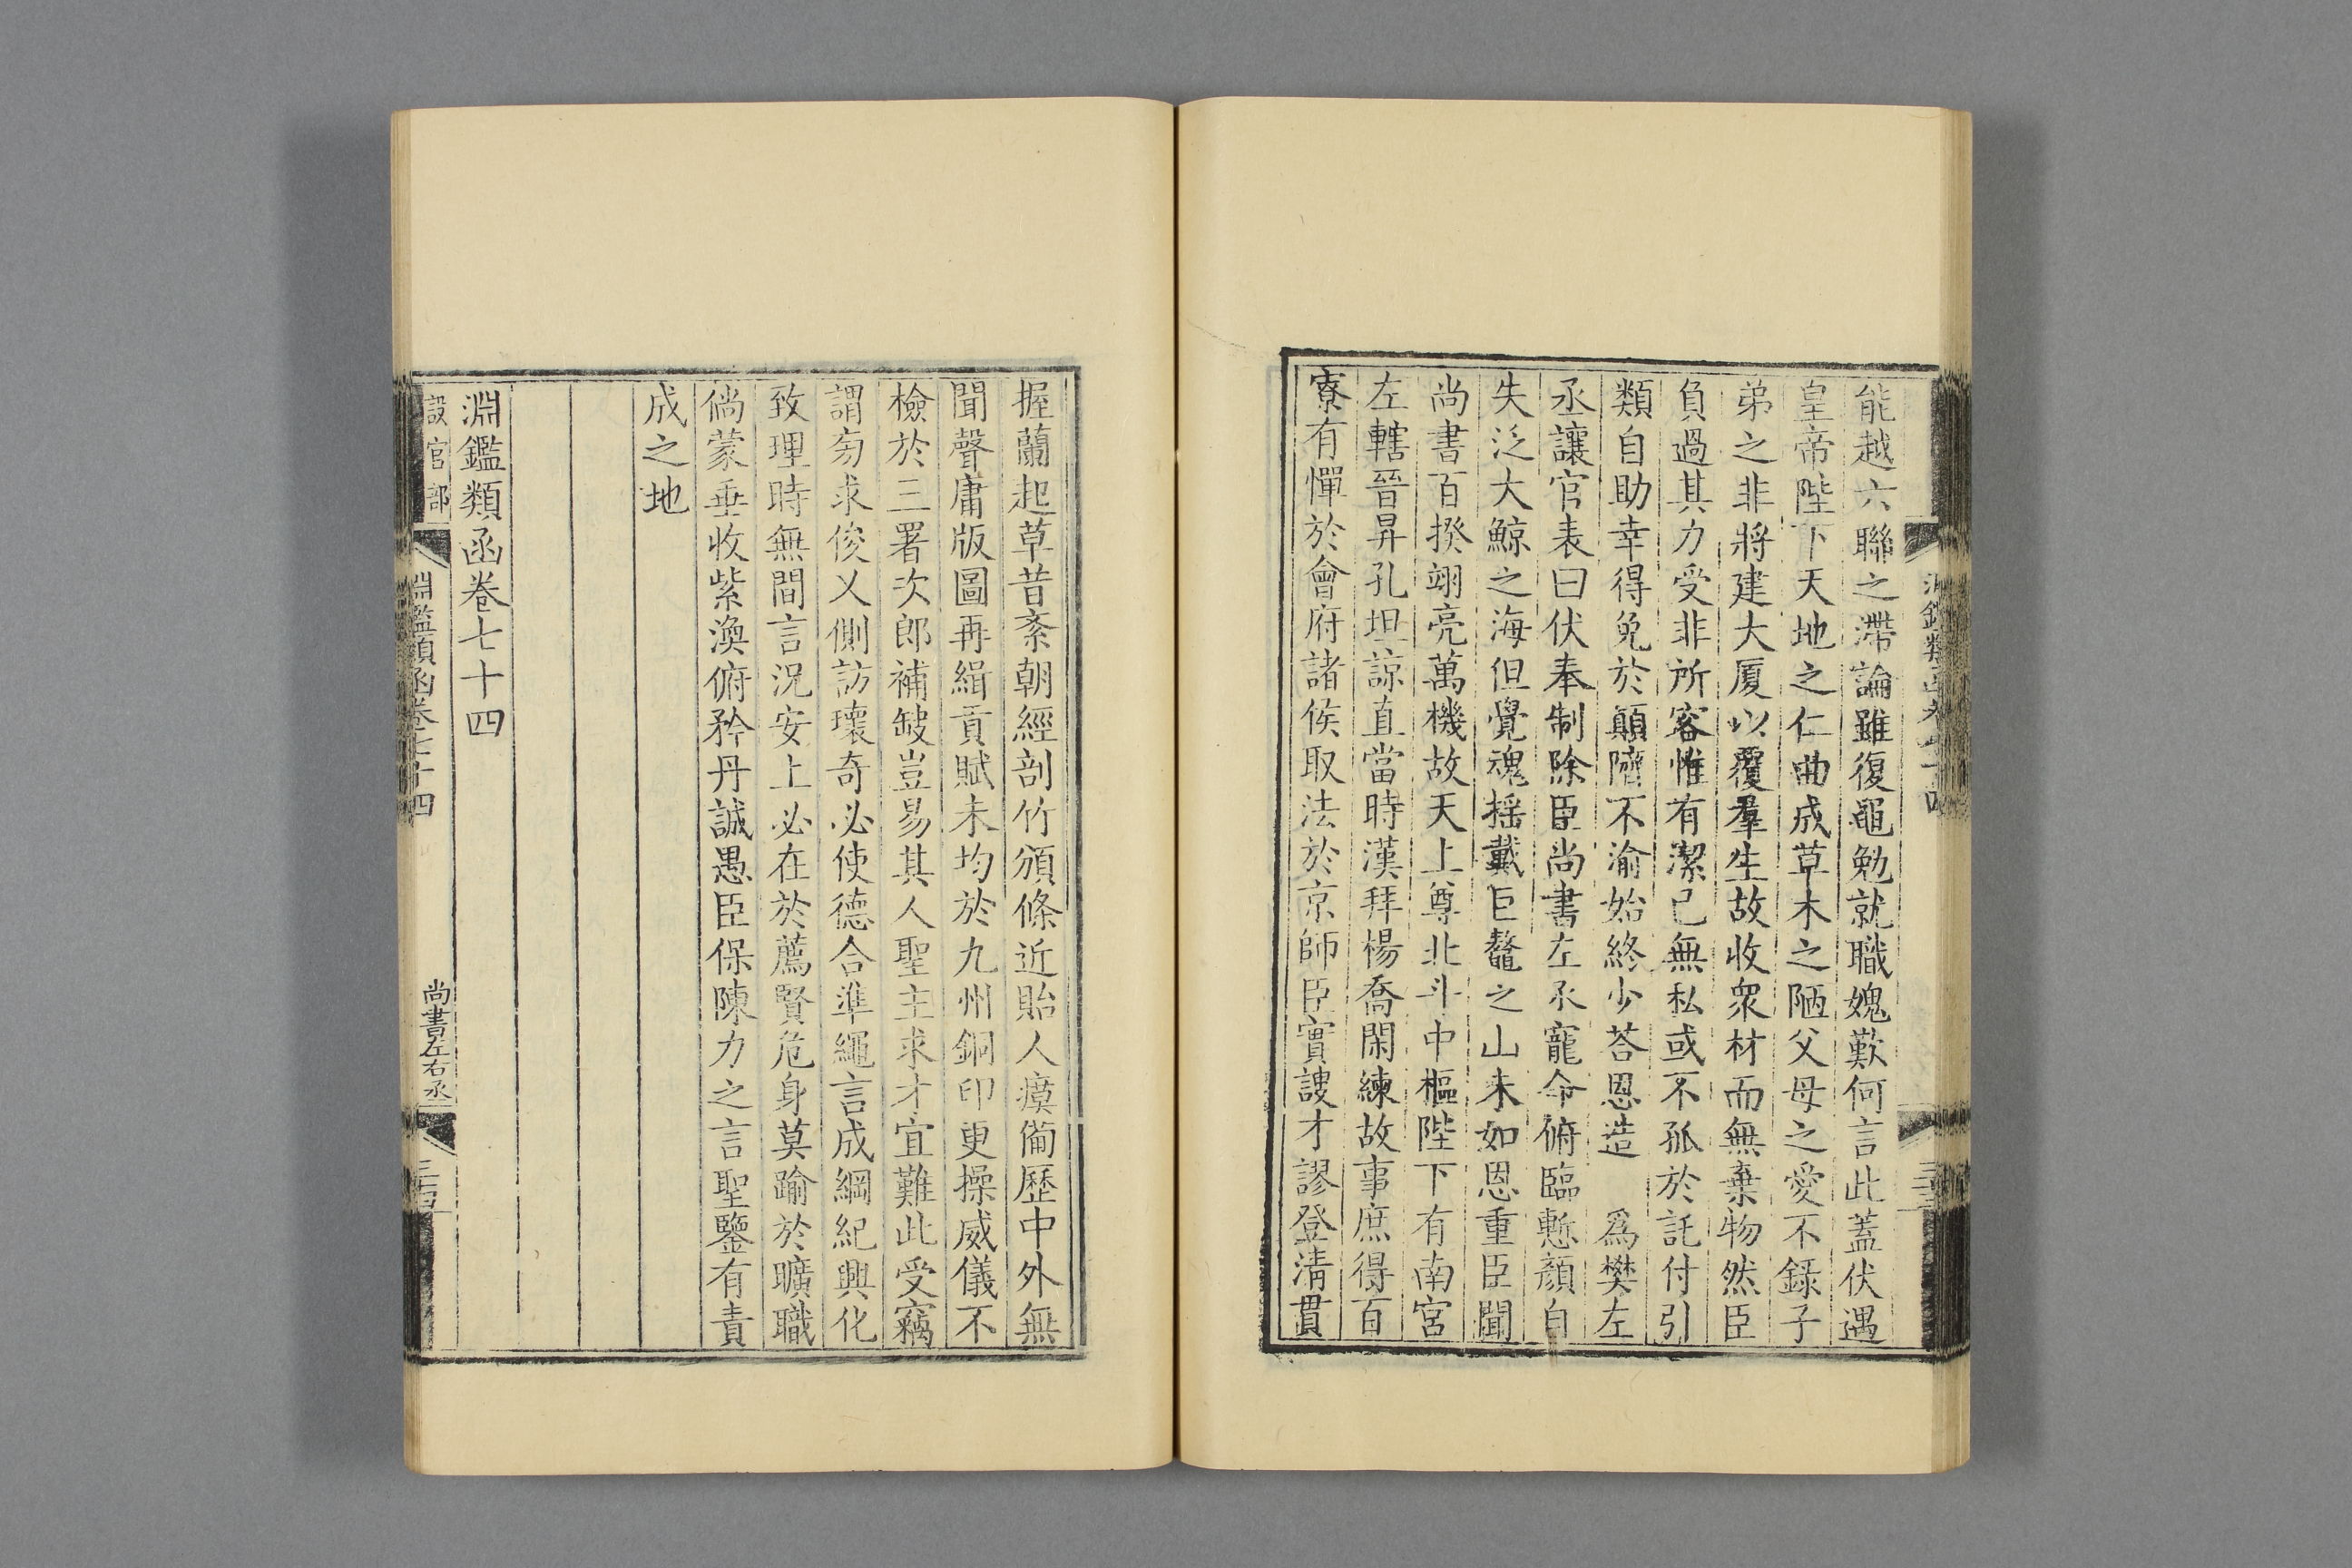 能越六聯之滯論雖復黽勉就職媿歎何言此蓋伏遇
皇帝陛下天地之仁曲成草木之陋父母之愛不錄子
弟之非將建大厦以覆羣生故收衆材而無棄物然臣
負過其力受非所容惟有潔己無私或不孤於託付引
類自助幸得免於顛隮不渝始終少荅恩造　爲樊左
丞讓官表曰伏奉制除臣尚書左丞寵命俯臨慙顏自
失泛大鯨之海但覺魂揺戴巨鼇之山未如恩重臣聞
尚書百揆翊亮萬機故天上尊北斗中樞陛下有南宮
左轄晉昇孔坦諒直當時漢拜楊喬閑練故事庶得百
寮有憚於會府諸侯取法於京師臣實謏才謬登清貫
握蘭起草昔紊朝經剖竹頒條近貽人瘼僃歷中外無
聞聲庸版圖再緝貢賦未均於九州銅印更操威儀不
檢於三署次郎補缺豈易其人聖主求才宜難此受竊
謂旁求俊乂側訪瓌奇必使德合準繩言成綱紀興化
致理時無間言況安上必在於薦賢危身莫踰於曠職
倘蒙垂收紫渙俯矜丹誠愚臣保陳力之言聖鑒有責
成之地
淵鑑類函卷七十四
設官部
淵鑑類函卷七十四
尚書左右丞
三百